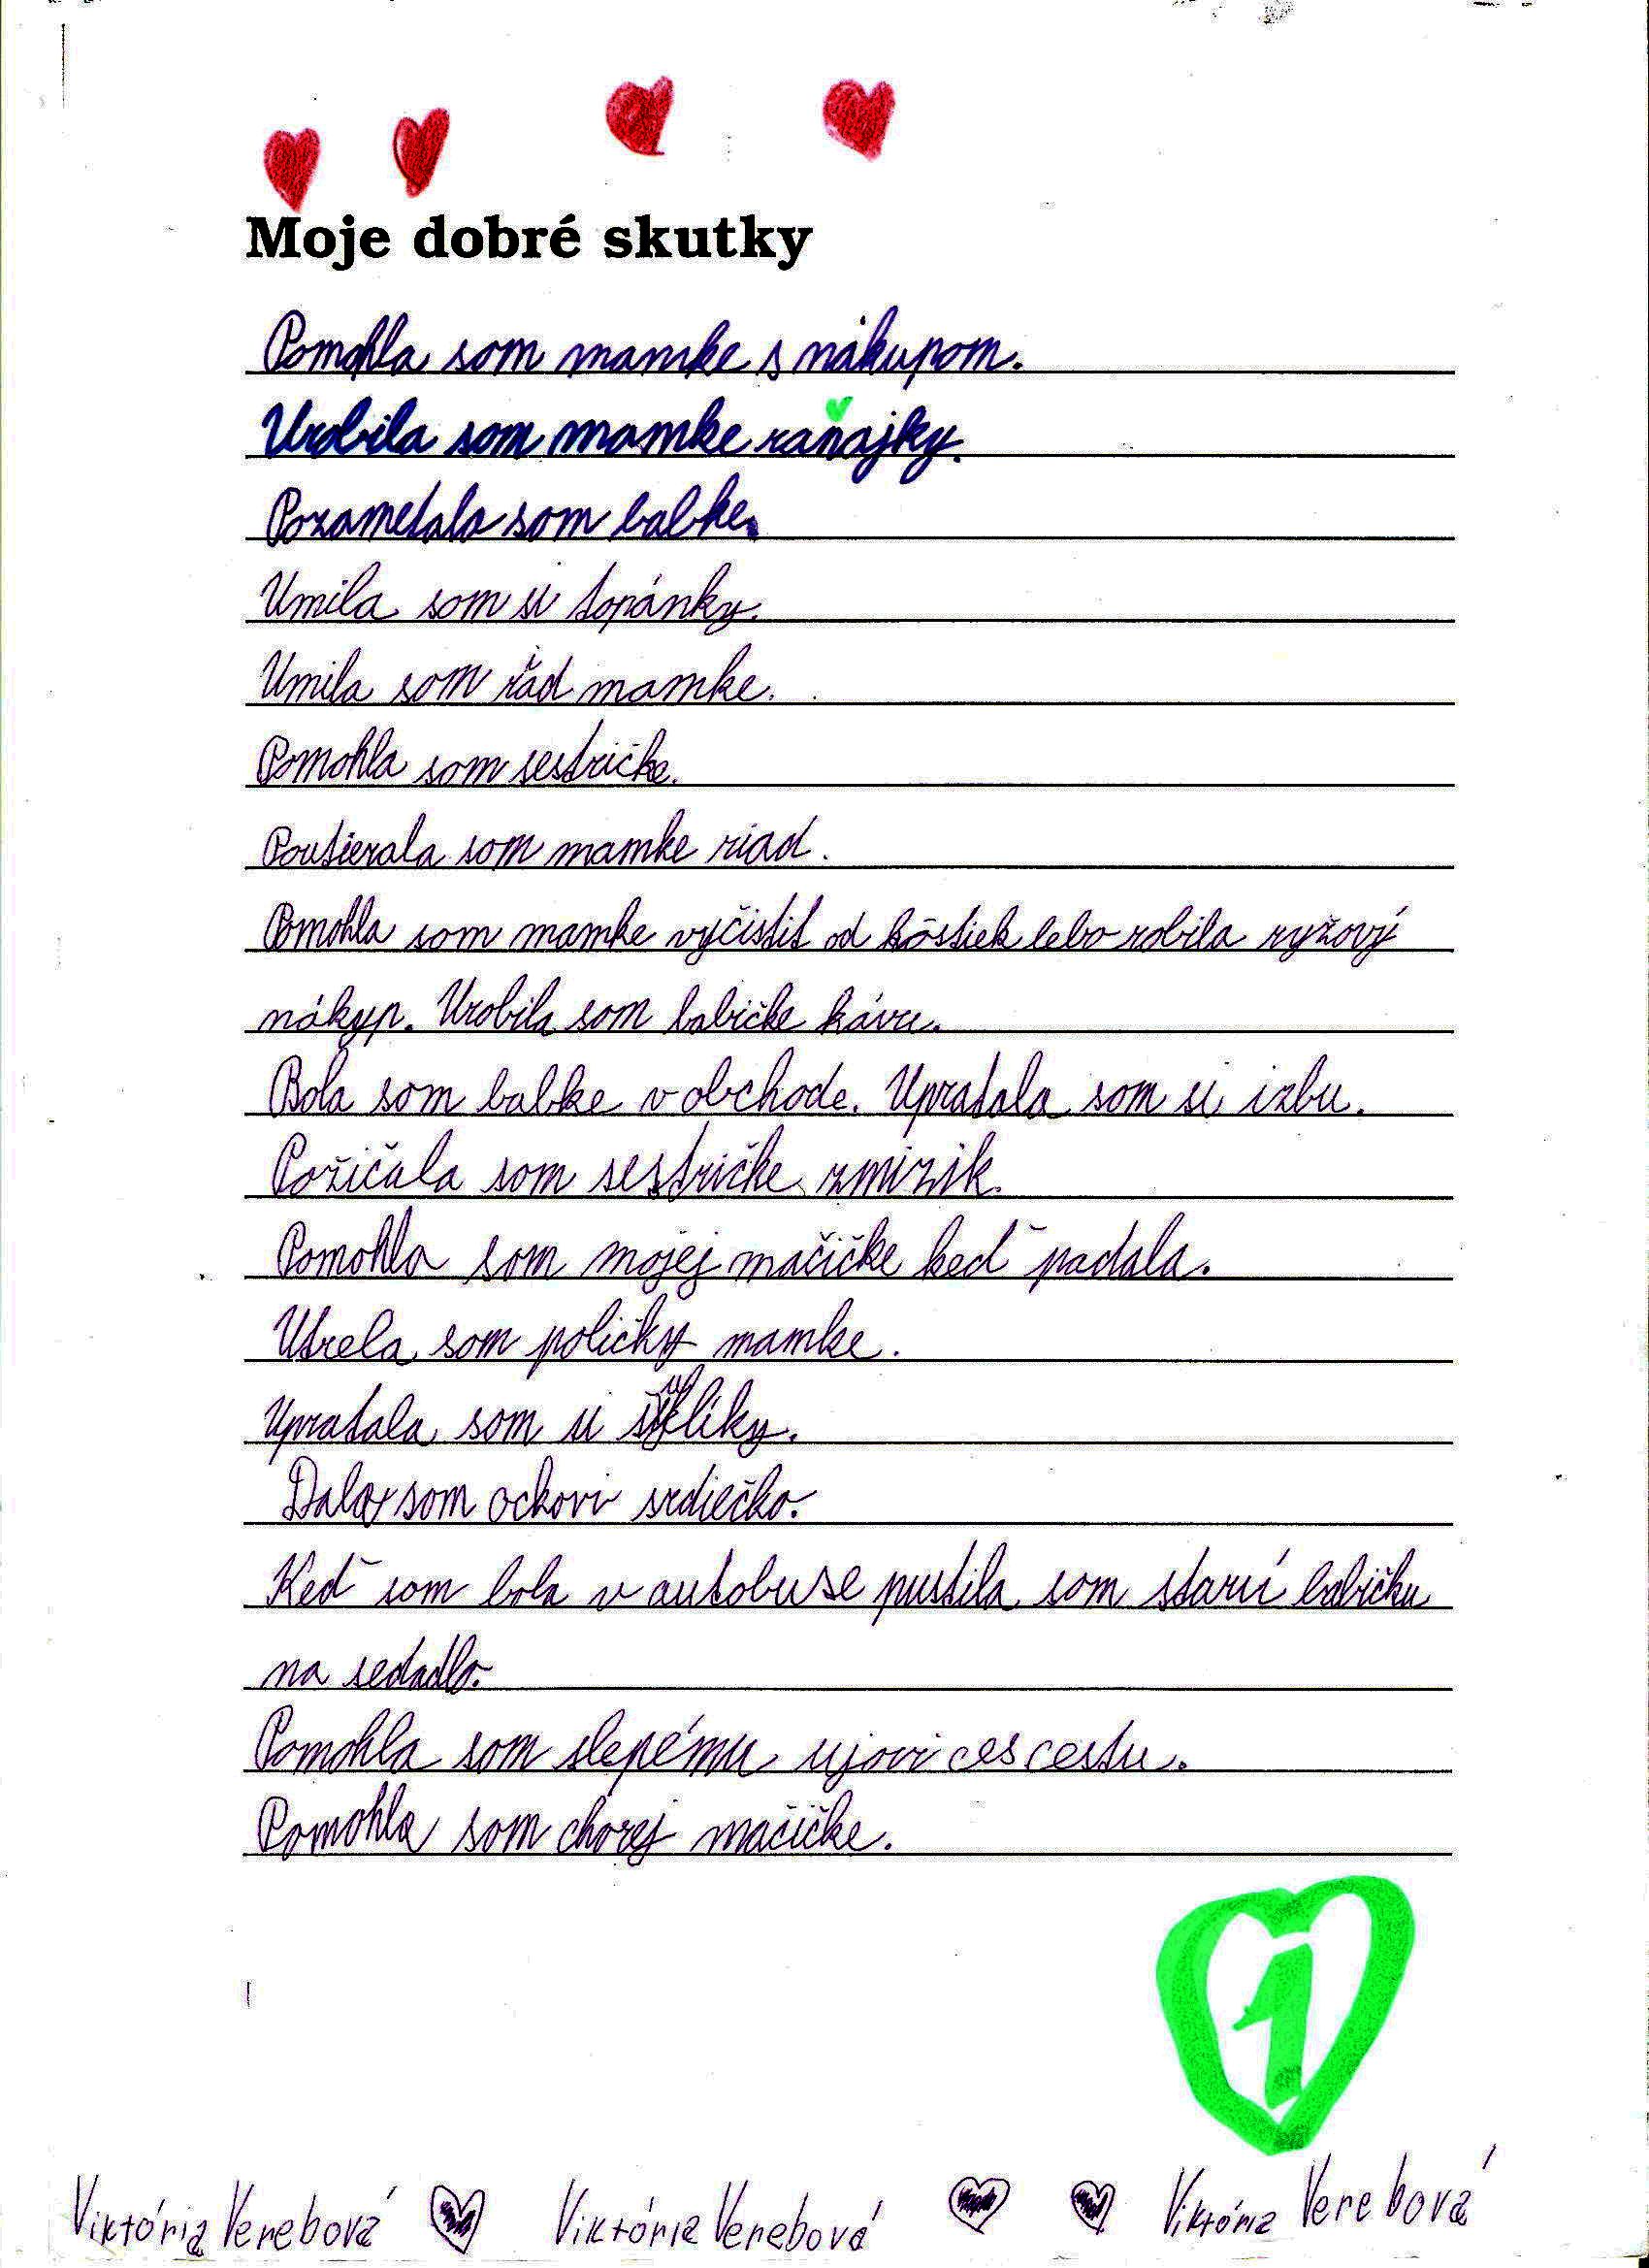 Moje dobré skutky
Pomohla som mamke s nákupom.
Urobila som mamke raňajky.
Pozametala som babke.
Umila som si topánky.
Umila som řád mamke.
Pomohla som sestričke.
Poutierala som mamke riad.
Pomohla som mamke vyčistit od kôstiek lebo robila ryžový
nákyp. Urobila som babičke kávu.
Bola som babke v obchode. Upratala som si izbu.
Požičala som sestričke zmizik.
Pomohla som mojej mačičke keď padala.
Utrela som poličky mamke.
Upratala som si šuflíky.
Dala som ockovi srdiečko.
Keď som bola v autobuse pustila som starú babičku
na sedadlo.
Pomohla som slepému ujovi ces cestu.
Pomohla som chorej mačičke.
1
Viktória Verebová Viktória Verebová Viktória Verebová